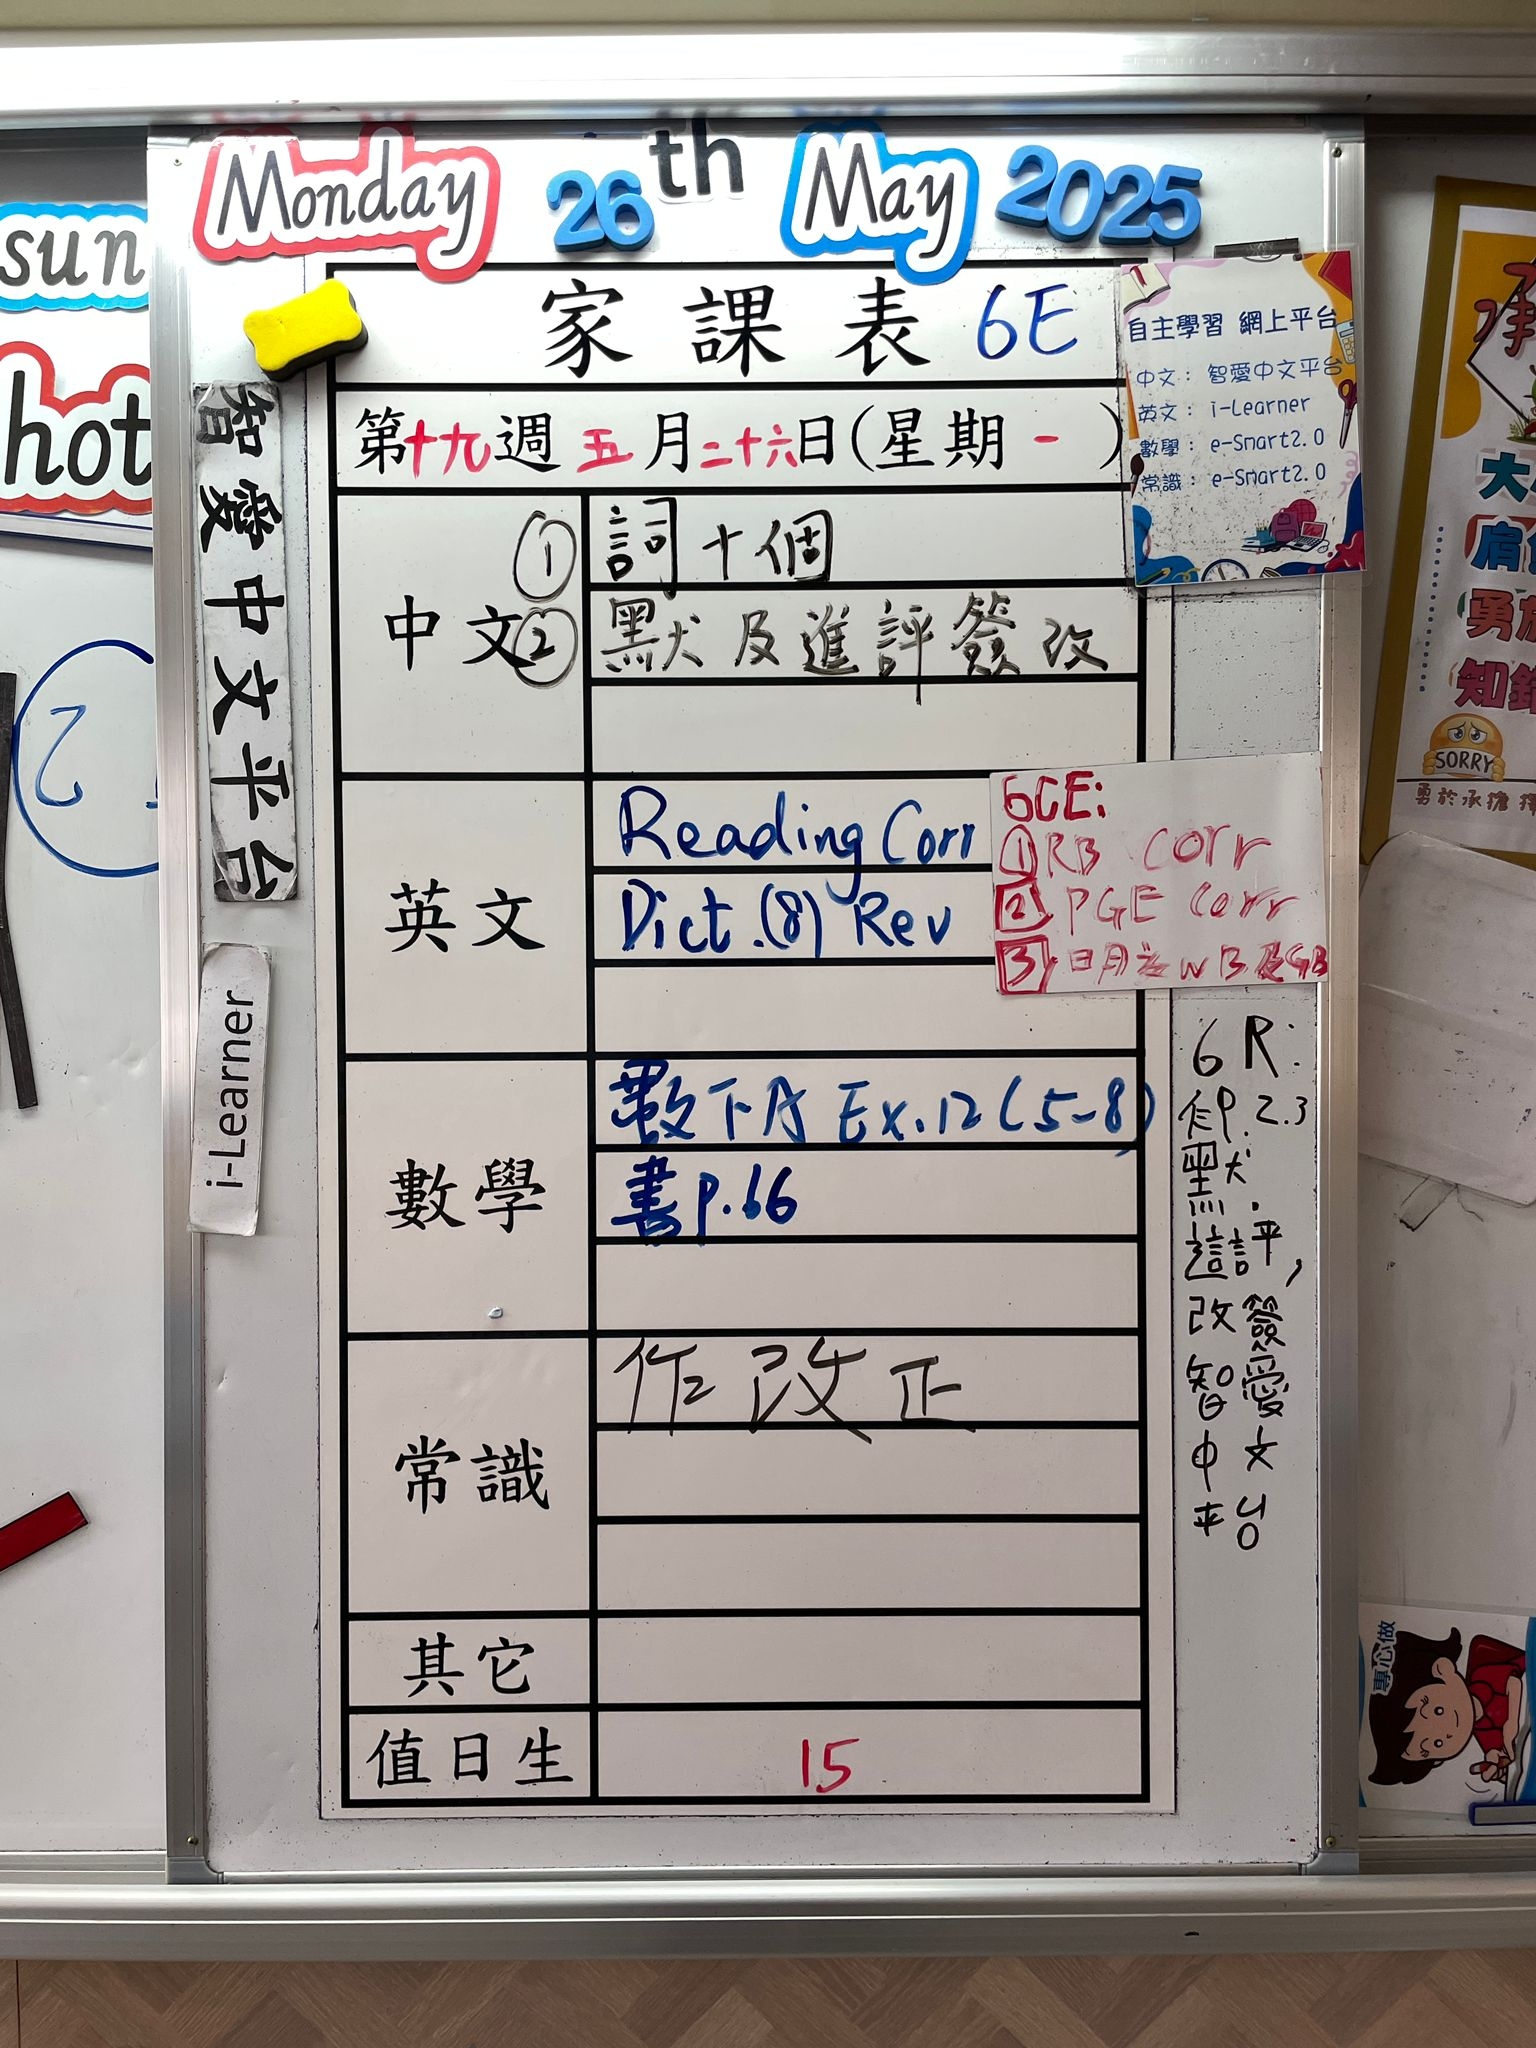 Monday 26th May 2025
sun
hot
家課表 6E
第十九週 五月二十六日(星期一)
自主學習 網上平台
中文：智愛中文平台
英文：i-Learner
數學：e-Smart2.0
常識：e-Smart2.0
智愛中文平台
i-Learner
中文
① 詞十個
② 默及進評簽改
英文
Reading Corr
Dict.(8) Rev
6CE:
① RB corr
② PGE corr
③ WB及GB
數學
數下A Ex.12(5-8)
書p.66
常識
作改正
其它
值日生
15
6R:
P.2.3
默.
評,
改簽
智愛
中文
平台
2
大
肩
勇於
知錯
SORRY
勇於承擔
專心做